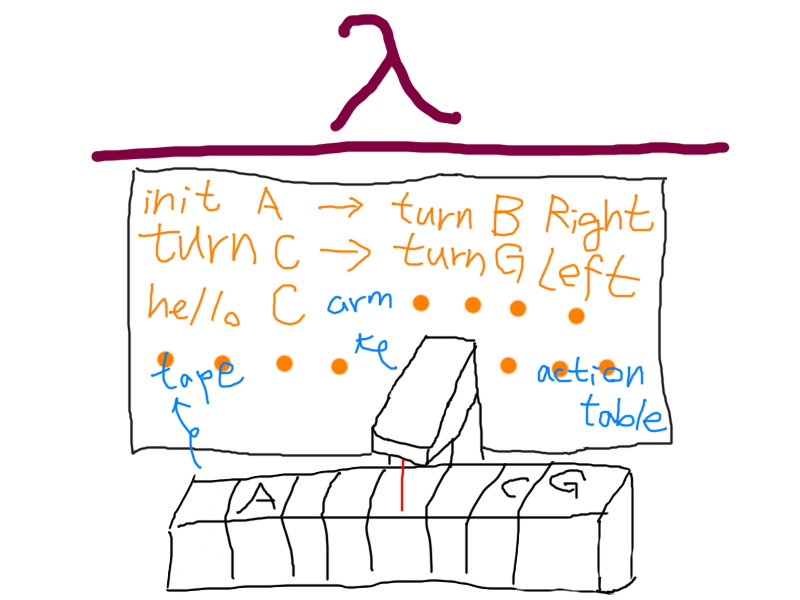 λ
init A → turn B Right
turn C → turn G Left
hello C
arm
tape
action
table
A C G